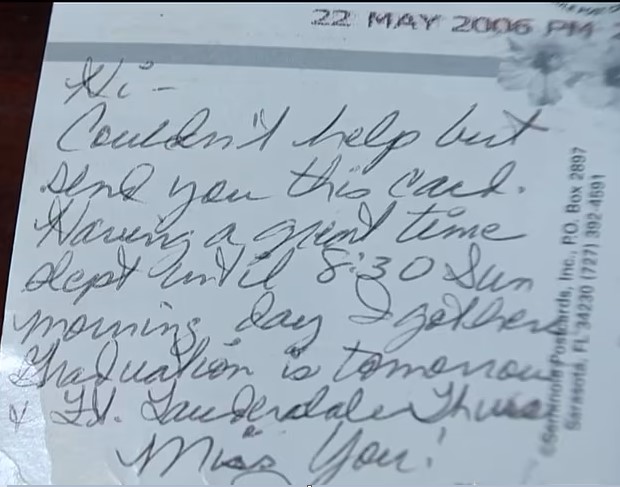 22 MAY 2006 PM
Hi -
Couldn't help but
send you this card.
Having a great time
slept until 8:30 Sun
morning, day I got here
Graduation is tomorrow
& Ft. Lauderdale Thurs
Miss You!
©Seminole Postcards, Inc., P.O. Box 2897
Sarasota, FL 34230 (727) 392-4691